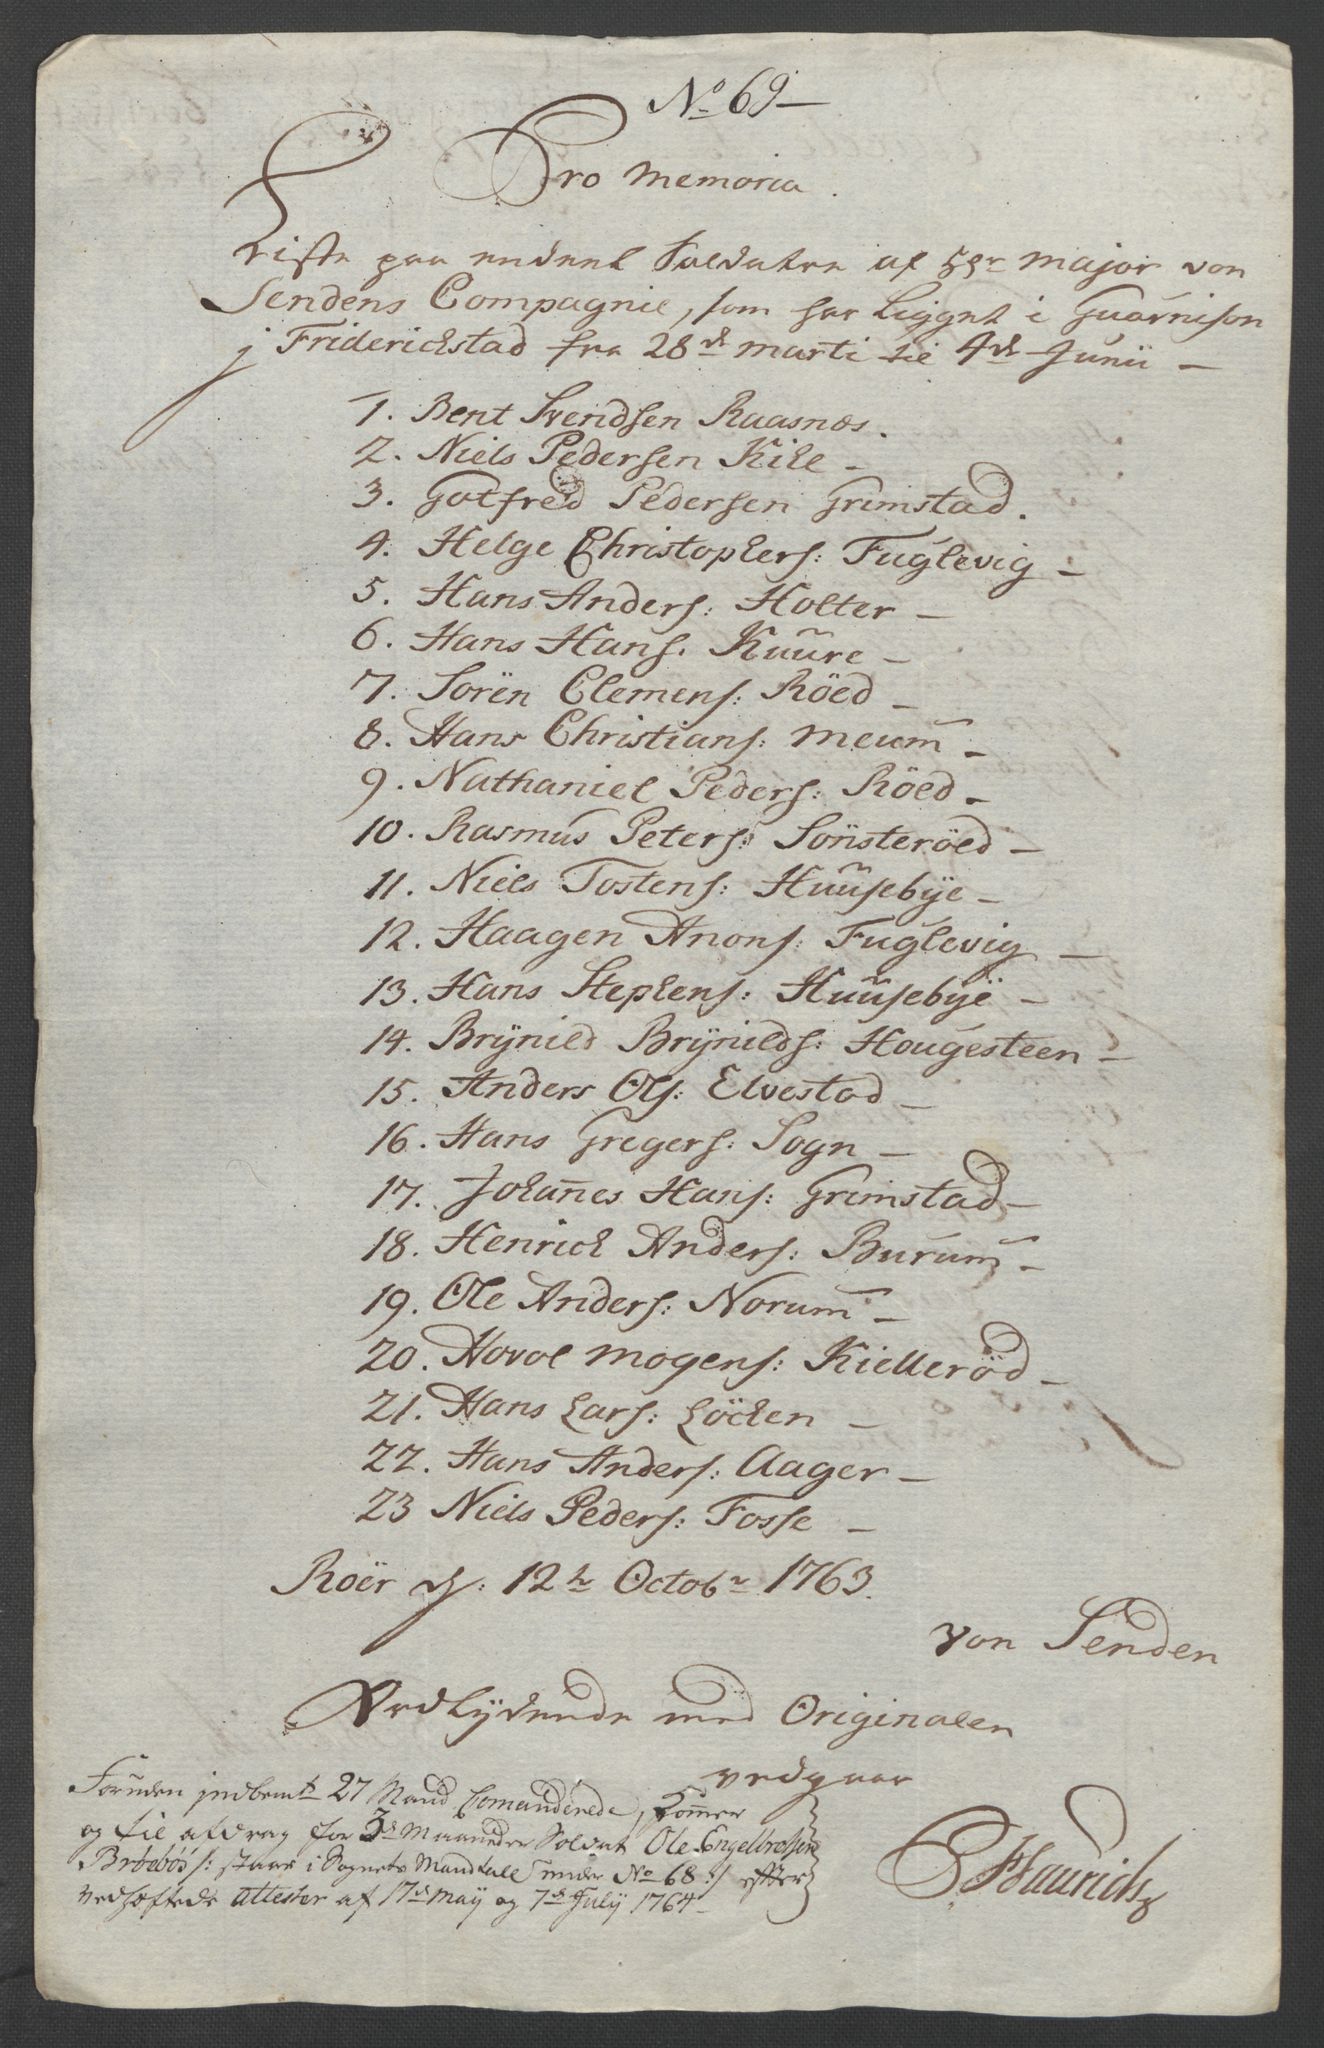 No 69
Pro Memoria.
Liste paa endeel Soldater af Hr Major von
Sendens Compagnie, som har ligget i Guarnison
j Friderichstad fra 28de Marti til 4de Junii
1. Bent Svendsen Raasnæs.
2. Niels Pedersen Kihl
3. Gotfred Pedersen Grimstad.
4. Helge Christophers: Fuglevig
5. Hans Anders: Holter
6. Hans Hans. Kuure
7. Sören Clemens: Röed
8. Hans Christians: Meum
9. Nathaniel Peders: Röed
10. Rasmus Peters: Sönsteröed
11. Niels Tostens: Huusebye
12. Haagen Arons: Fuglevig
13. Hans Stephens: Huusebye
14. Brynild Brynilds: Hougesteen
15. Anders Ols: Elvestad
16. Hans Gregers: Sogn
17. Johannes Hans: Grimstad
18. Henrich Anders: Burum
19. Ole Anders: Norum
20. Hovol Mogens: Kiellerød
21. Hans Lars: Löcken
22. Hans Anders: Aager
23 Niels Peders: Fosse
Roër d: 12te Octobr 1763.
von Senden
Ordlydende med Originalen
vedgaar
Foruden indbemte 27 Mand Comanderede, kommer
og til afdrag for 3de Maaneder Soldat Ole Engelbretsen
Brøebøs: staar i Sognets Mandtall under No 68 :/ efter
vedhæftede attester af 17de May og 7de July 1764
Haurich